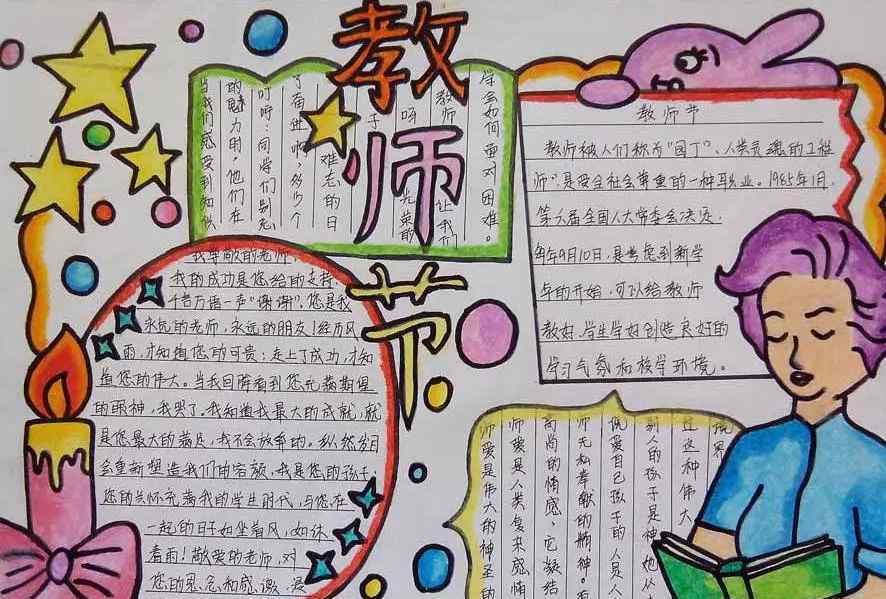 教师节
教师节
教师被人们称为“园丁”、人类灵魂的工程
师”，是受全社会尊重的一种职业。1985年1月，
第六届全国人大常委会决定，
每年9月10日，是考虑到新学
年的开始，可以给教师
教好、学生学好创造良好的
学习气氛和校学环境。
学会如何面对困难。
教师
让我们
光荣的
呀
子
难忘的日
了奋进啊，多少个
叮咛：同学们别忘
的魅力时，他们在
当我们感受到知识
我尊敬的老师
我的成功是您给的支持，
千言万语一声“谢谢”，您是我
永远的老师，永远的朋友！经历风
雨，才知道您的可贵；走上了成功，才知
道您的伟大。当我回眸看到您充满期望
的眼神，我哭了。我知道我最大的成就，就
是您最大的满足，我不会放弃的。纵然岁月
会重新塑造我们的容颜，我是您的孩子；
您的关怀充满我的学生时代，与您在
一起的日子如坐春风，如沐
春雨！敬爱的老师，对
您的思念和感激，是
境界
过这种伟大
别人的孩子是神
低爱自己孩子的人是人
师无私奉献的精神。有
高尚的情感，它凝结
师爱是人类复杂感情
师爱是伟大的神圣的